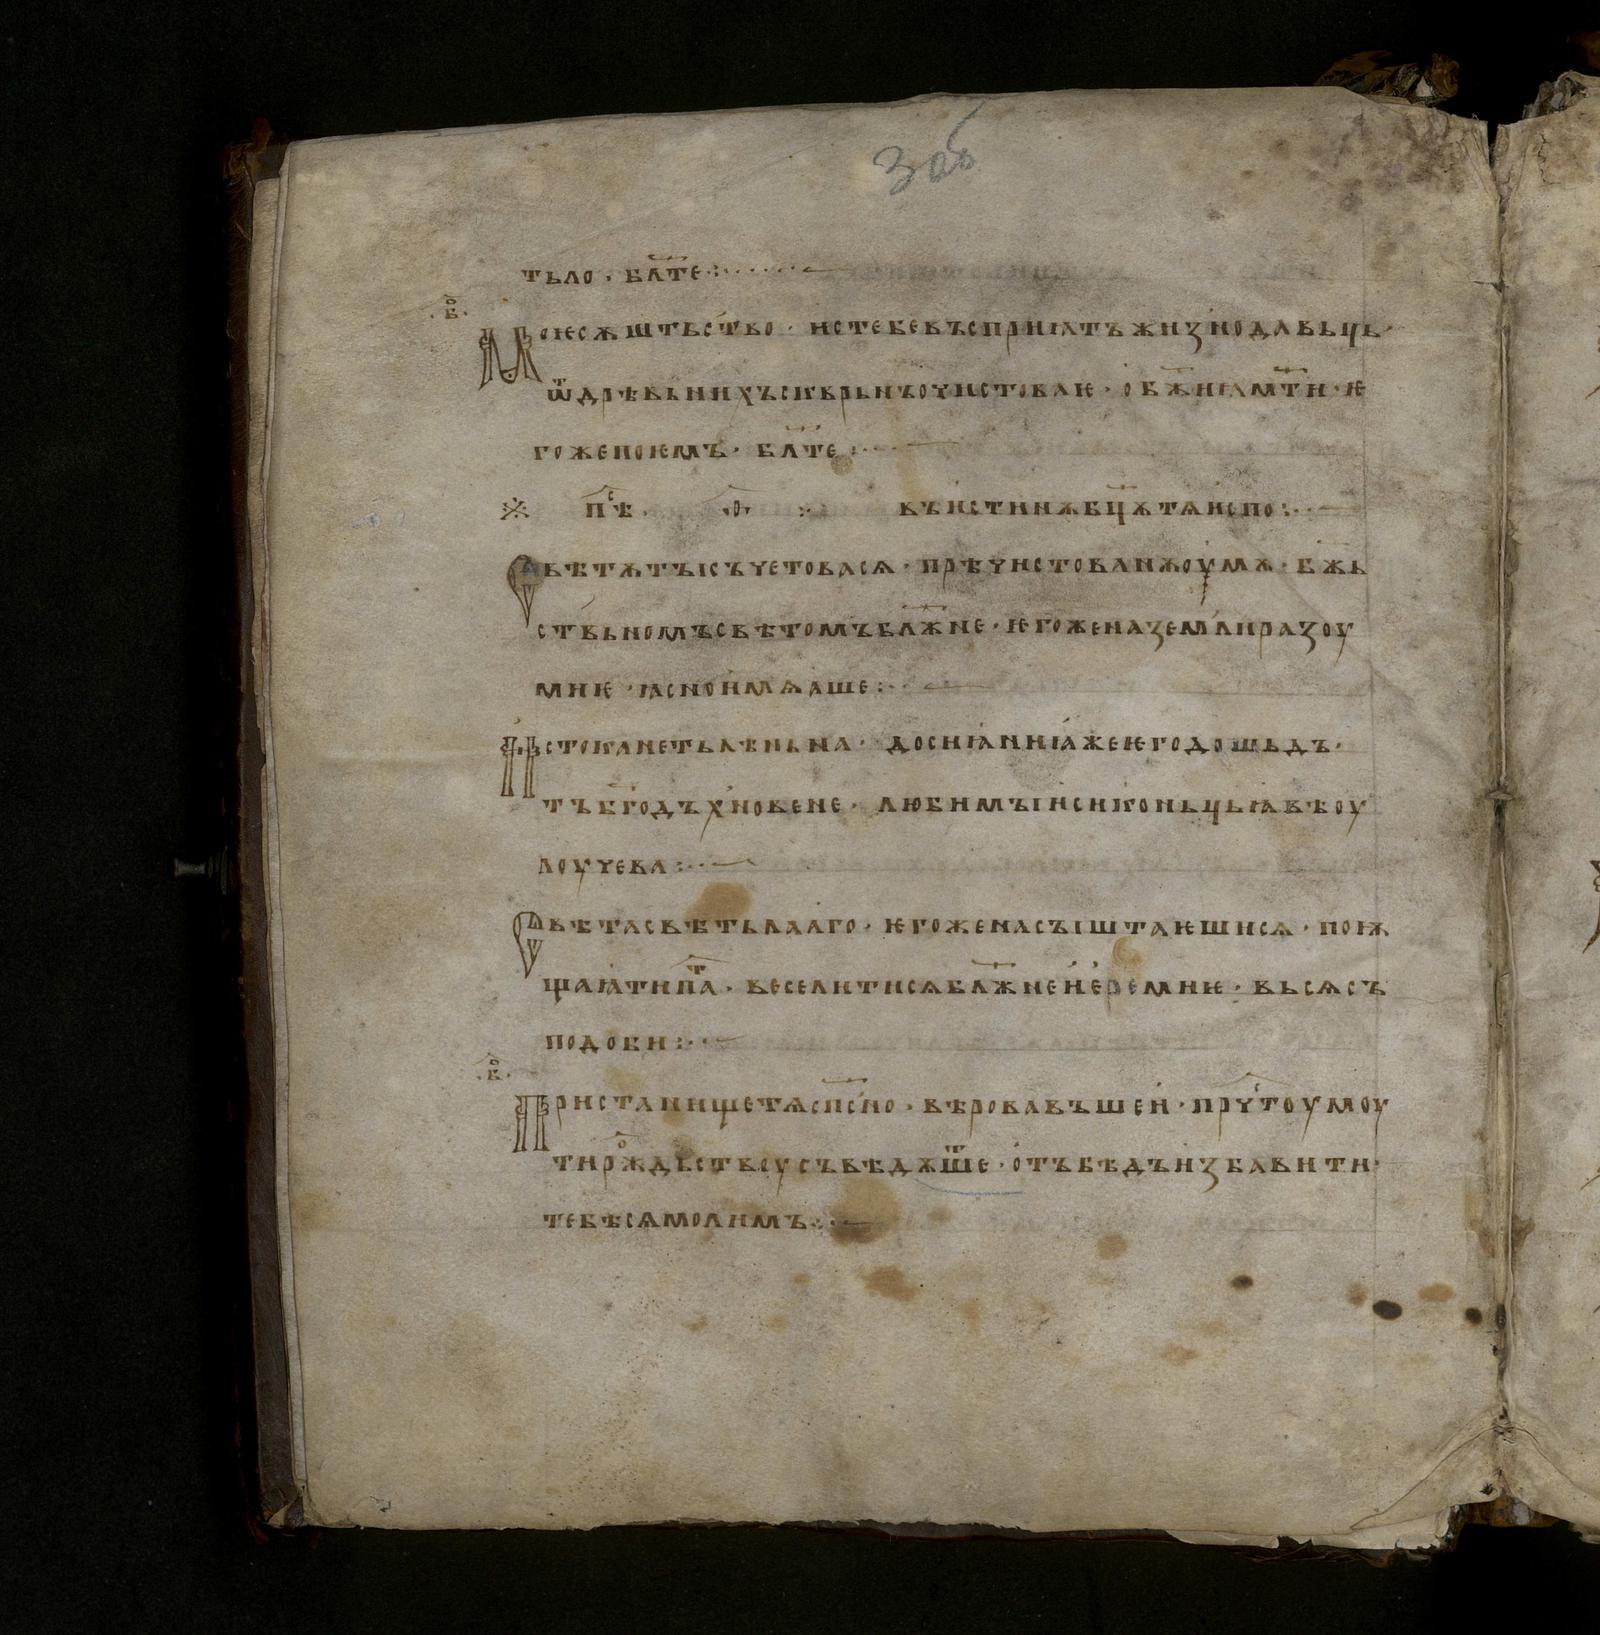 30б
тьло · бл҃те :·
б҃о
Моѥсѫштьство · ис тебе въсприꙗтъ жизнодавьць ·
ѿ дрѣвьнихъ сквьрнъ оуистоваѥ · о бж҃иꙗ мт҃и · ѥ
гоже поѥмъ · бл҃те :·
※ пѣ҃с · ѳ҃ : въ истинѫ бц҃ѫ тѧ испо :·
Свѣтѫ тꙑ съчетовасѧ · прѣчистованѫ оумѫ · бж҃ь
ствьномъ свѣтомъ блж҃не · ѥгоже на земли разоу
мниѥ · ꙗсно имѧаше :·
Истокa нетьлѣньна · до сиꙗниꙗ же ѥго дошьдъ ·
тъ бг҃одъхновене · любимꙑи си коньць ꙗвѣ оу
лоучева :·
Свѣта свѣтьлааго · ѥгоже насꙑштаѥшисѧ · поѭ
щаꙗ ти па҃т · веселитисѧ блж҃не иеремиѥ · вьсѧ съ
подоби :·
б҃о
Пристанище тѧ сп҃сно · вѣровавъшеи · прч҃стоумоу
ти рож҃дьствоу съвѣдѫще · отъ бѣдъ избавити ·
тебѣ сѧ молимъ :·